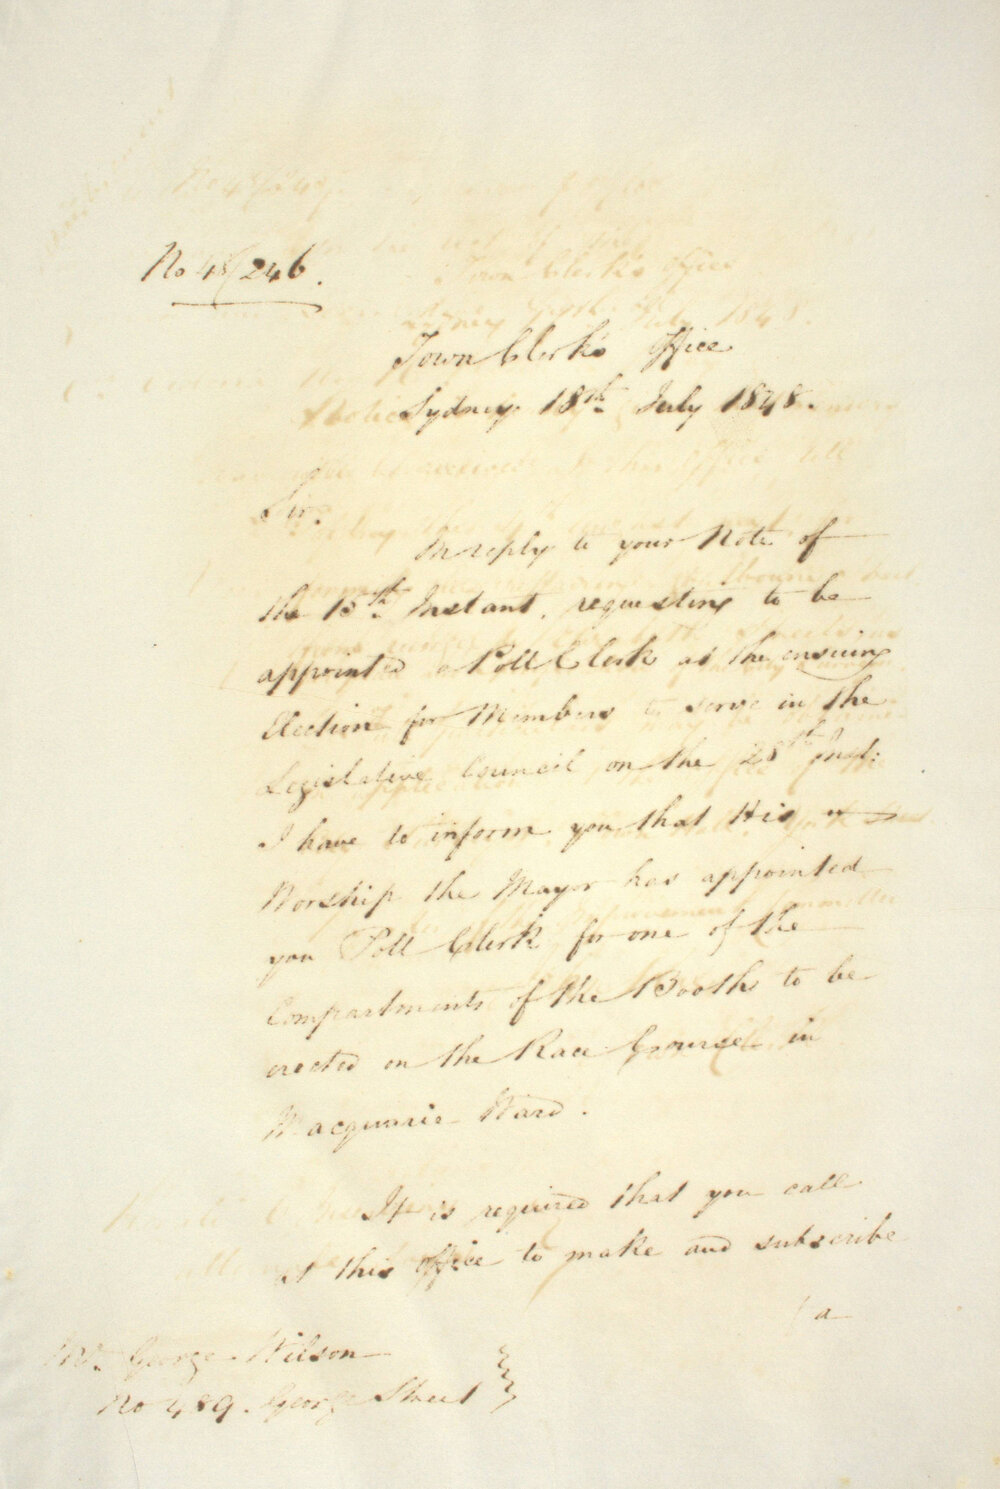 No 48/246.
Town Clerk's Office
Sydney 18th July 1848.
Sir.
In reply to your Note of
the 15th Instant, requesting to be
appointed a Poll Clerk at the ensuing
Election for Members to serve in the
Legislative Council on the 28th Inst:
I have to inform you that His
Worship the Mayor has appointed
you Poll Clerk for one of the
Compartments of the Booth to be
erected on the Race Course in
Macquarie Ward.
It is required that you call
at this Office to make and subscribe
a
Mr. George Wilson
No 489. George Street